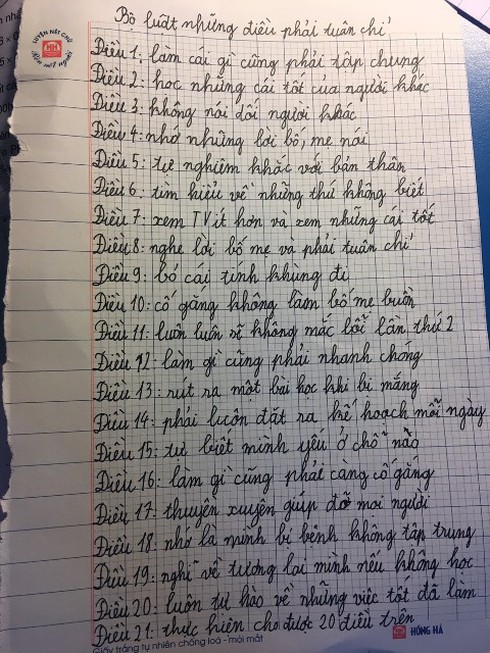 LUYỆN NÉT CHỮ
RÈN NẾT NGƯỜI
HH
Bộ luật những điều phải tuân chỉ
Điều 1: làm cái gì cũng phải tập chung
Điều 2: học những cái tốt của người khác
Điều 3: không nói dối người khác
Điều 4: nhớ những lời bố, mẹ nói
Điều 5: tự nghiêm khắc với bản thân
Điều 6: tìm hiểu về những thứ không biết
Điều 7: xem TV ít hơn và xem những cái tốt
Điều 8: nghe lời bố mẹ và phải tuân chỉ
Điều 9: bỏ cái tính khùng đi
Điều 10: cố gắng không làm bố mẹ buồn
Điều 11: luôn luôn sẽ không mắc lỗi lần thứ 2
Điều 12: làm gì cũng phải nhanh chóng
Điều 13: rút ra một bài học khi bị mắng
Điều 14: phải luôn đặt ra kế hoạch mỗi ngày
Điều 15: tự biết mình yếu ở chỗ nào
Điều 16: làm gì cũng phải càng cố gắng
Điều 17: thuyên xuyên giúp đỡ mọi người
Điều 18: nhớ là mình bị bệnh không tập trung
Điều 19: nghĩ về tương lai mình nếu không học
Điều 20: luôn tự hào về những việc tốt đã làm
Điều 21: thực hiện cho được 20 điều trên
Giấy trắng tự nhiên chống loá - mỏi mắt
HH HỒNG HÀ